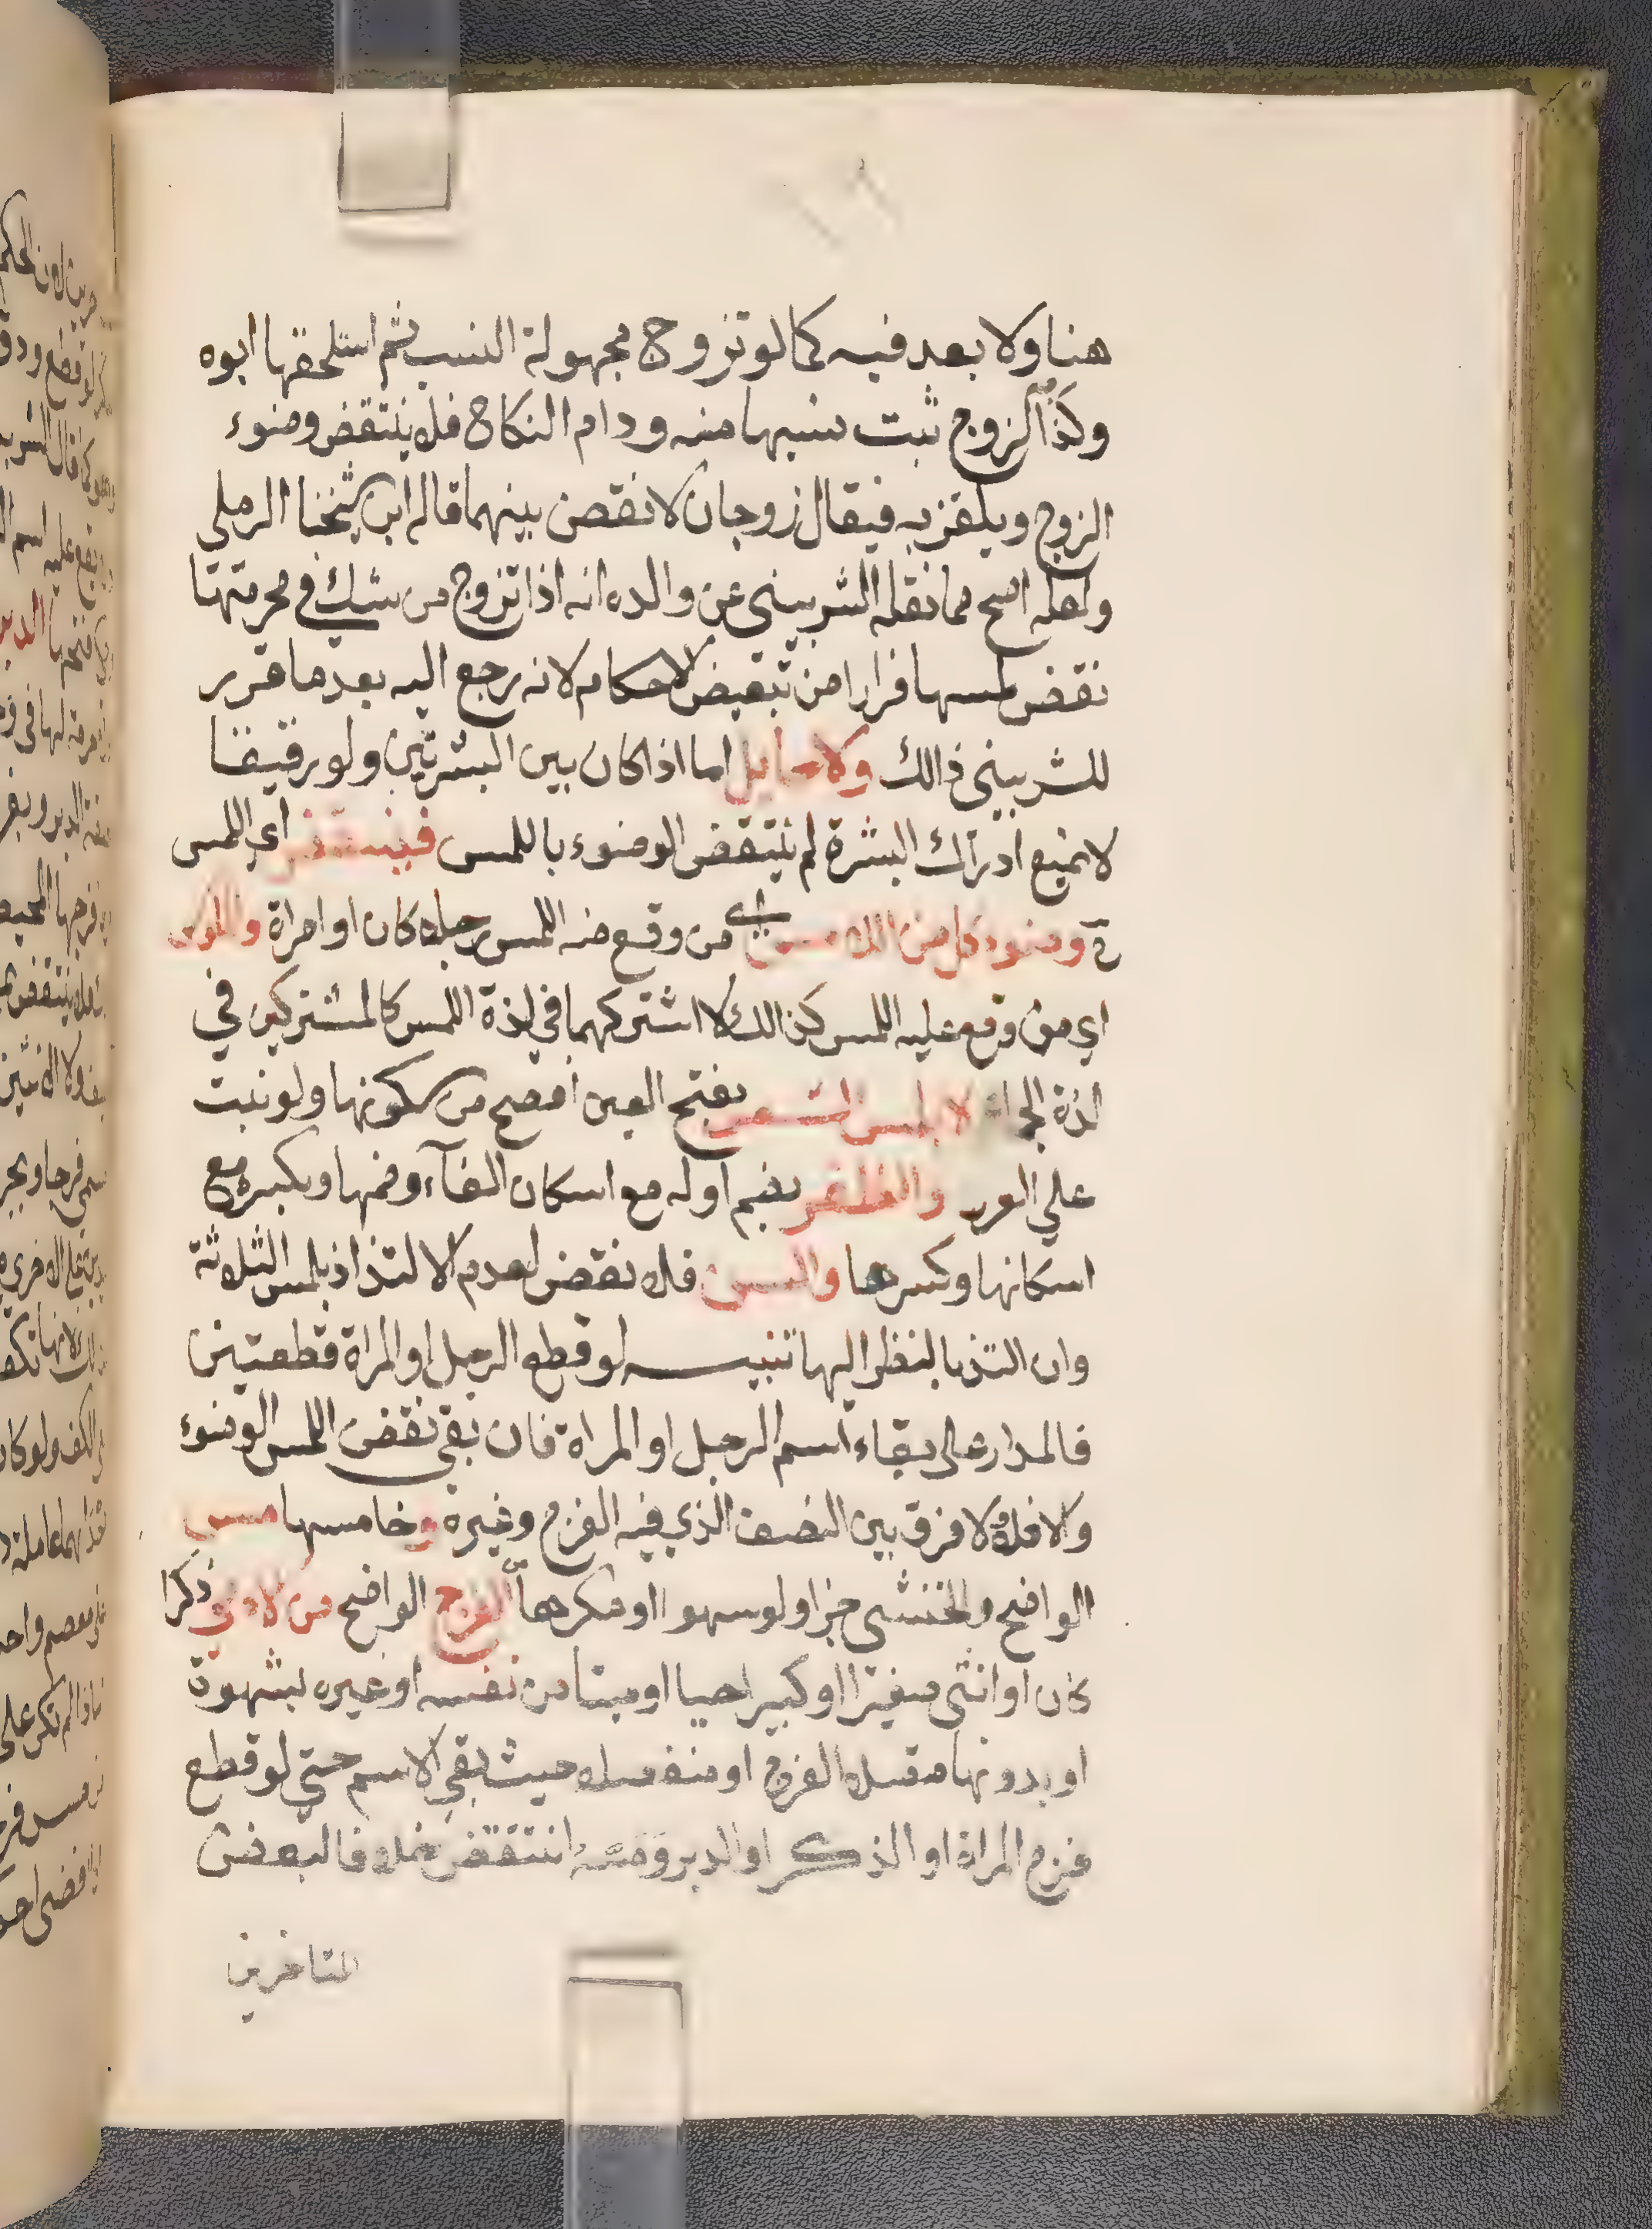 هنا ولا بعد فيه كما لو تزوج مجهولة النسب ثم استلحقها ابوه
وكذا الزوج ثبت نسبها منه ودام النكاح فلا ينتقض وضوء
الزوج ويلغز به فيقال زوجان لا نقض بينهما قاله ابن شيخنا الرملي
ولعله اصح مما نقله الشربيني عن والده انه اذا تزوج من شك في محرميتها
نقض لمسها فرارا من تبعيض الاحكام لانه رجع اليه بعد ما قرر
للشربيني ذالك ولا حايل اما اذا كان بين البشرتين ولو رقيقا
لا يمنع ادراك البشرة لم ينتقض الوضوء باللمس فينتقض اي اللمس
وضوء كل من اللامس اي من وقع منه اللمس رجلا كان او امراة والملموس
اي من وقع عليه اللمس كذالك لاشتركهما في لذة اللمس كالمشتركين في
لذة الجماع لا بلمس الشعر بفتح العين افصح من سكونها ولو نبت
علي الفرج والظفر بضم اوله مع اسكان الفآء وضمها وبكسره مع
اسكانها وكسرها والسن فلا نقض لعدم الالتذاذ بلمس الثلاثة
وان التذ بالنظر اليها تنبيه لو قطع الرجل او المراة قطعتين
فالمدار على بقاء اسم الرجل او المراة فان بقي نقض اللمس الوضوء
والا فلا ولا فرق بين النصف الذي فيه الفرج وغيره وخامسها مس
الواضح والخنثي جزا ولو سهوا او مكرها الفرج الواضح من الادمي ذكرا
كان او انثى صغيرا او كبيرا حيا او ميتا من نفسه او غيره بشهوة
او بدونها متصلا الفرج او منفصلا حيث بقي الاسم حتي لو قطع
فرج المراة او الذكر او الدبر ومسه انتقض خلافا لبعض
المتاخرين